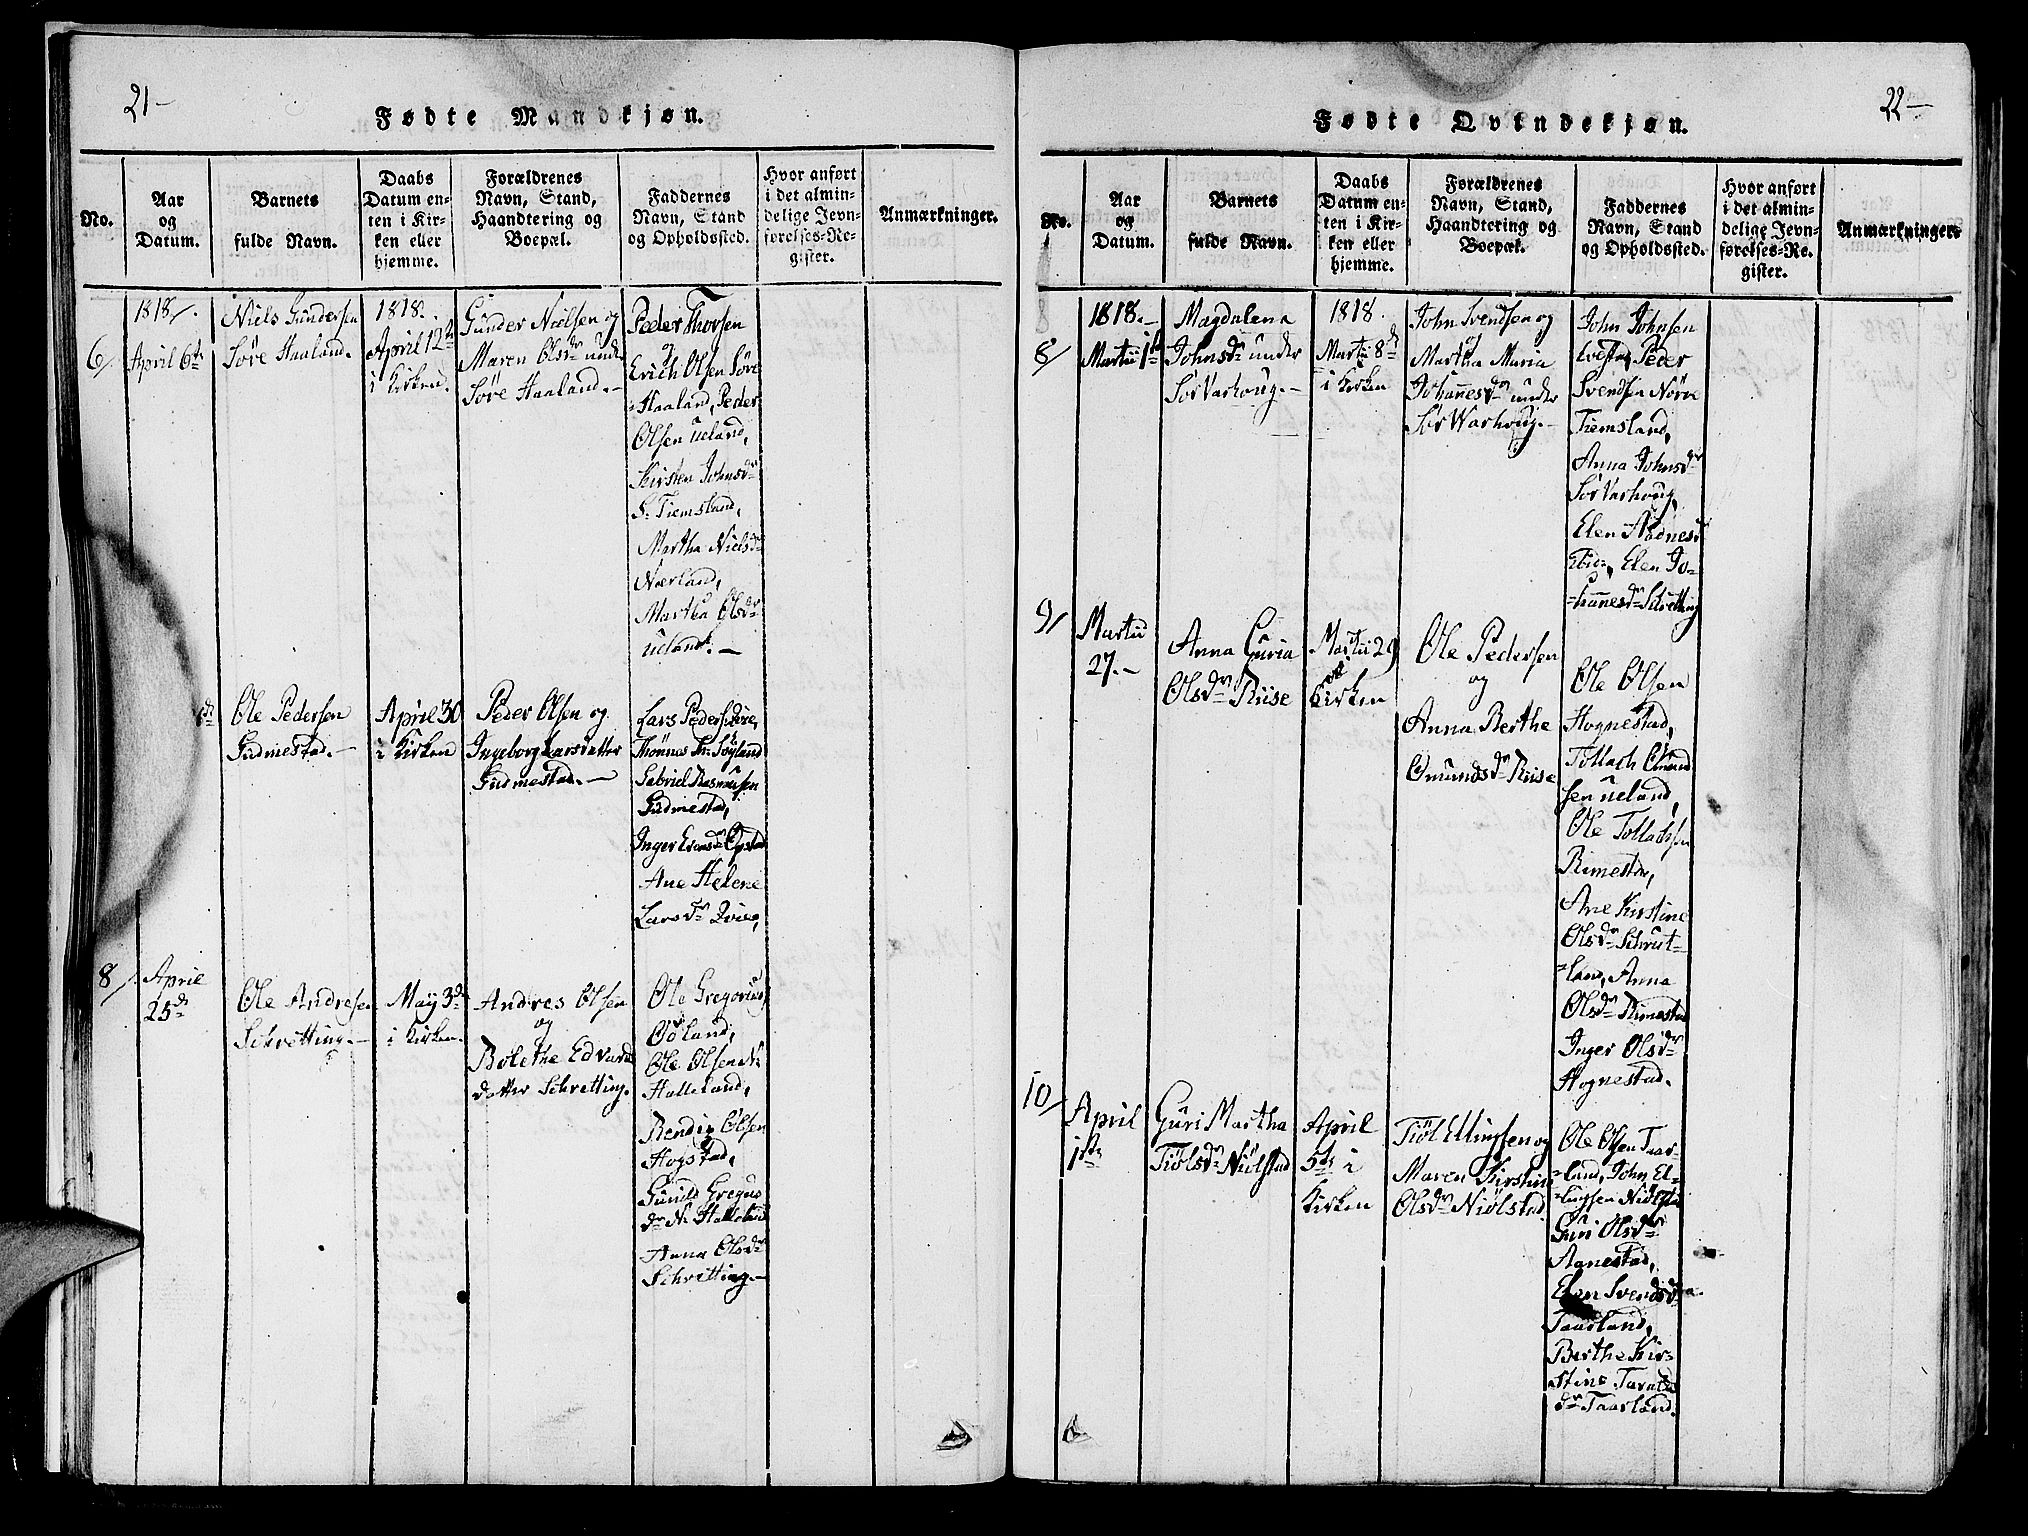 21-
Fødte Mandkjøn.
No.
Aar
og
Datum.
Barnets
fulde Navn.
Daabs
Datum en-
ten i Kir-
ken eller
hjemme.
Forældrenes
Navn, Stand,
Haandtering og
Boepæl.
Faddernes
Navn, Stand
og Opholdssted.
Hvor anført
i det almin-
delige Jevn-
førelses-Re-
gister.
Anmærkninger.
6/
1818.
April 6te
Niels Gundersen
Söre Haaland.
1818.
April 12te
i Kirken.
Gunder Nielsen og
Maren Olsdr under
Söre Haaland.-
Peder Thorsen
og
Erich Olsen Söre
=Haaland, Peder
Olsen Ueland,
Kirsten Johnsdr
S: Tiemsland,
Martha Nielsdr
Nærland,
Martha Olsdr
Ueland.-
Ole Pedersen
Gudmestad.-
April 30
i Kirken
Peder Olsen og
Ingeborg Larsdatter
Gudmestad.-
Lars Pedersen
Gabriel Rasmusen
Gudmestad,
Ane Helene
Larsdr
8/
April
25de
Ole Andresen
Schretting.-
May 3de
i Kirken.
Andres Olsen
og
Bolethe Edvards
datter Schretting.
Ole Gregorius
Ödland,
Ole Olsen N:
Halleland,
Olsen
Hogstad,
Gunild Gregus
dr N: Halleland
Anna Olsdr
Schretting.-
22-
Fødte Qvindekjøn.
No.
Aar
og
Datum.
Barnets
fulde Navn.
Daabs
Datum en-
ten i Kir-
ken eller
hjemme.
Forældrenes
Navn, Stand,
Haandtering og
Boepæl.
Faddernes
Navn, Stand
og Opholdssted.
Hvor anført
i det almin-
delige Jevn-
førelses-Re-
gister.
Anmærkninger.
8/
1818.-
Martii 1ste
Magdalena
Johnsdr under
Sör Varhoug.-
1818.
Martii 8de
i Kirken
John Svendsen og
Martha Maria
Johannesdr under
Sör Warhoug.-
John Johnsen
Peder
Svendsen Nörre
Tiemsland,
Anna Johnsdr
Sör Varhoug,
Elen Aadnesdr
Ibid., Elen Jo-
=hannesdr Schretting
9/
Martii
27.-
Anna Guria
Olsdr Riise
Martii 29
Kirken
Ole Pedersen
og
Anna Berthe
Omundsdr Riise
Ole Olsen
Hognestad,
Tollach Omund
sen Ueland,
Ole Tollachsen
Rimestad,
Ane Kirstine
Olsdr Schrut-
=land, Anna
Olsdr Rimestad
Inger Olsdr
Hognestad.
10/
April
1ste
Guri Martha
Tiölsdr Niölstad
April
5te i
Kirken
Tiöl Ellingsen og
Maren Kirstine
Olsdr Niölstad
Ole Olsen Taar-
=land, John El-
=lingsen Niölstad
Guri Olsdr
Aanestad,
Elen Svendsdr
Taarland,
Berthe Kir-
stine
dr Taarland.